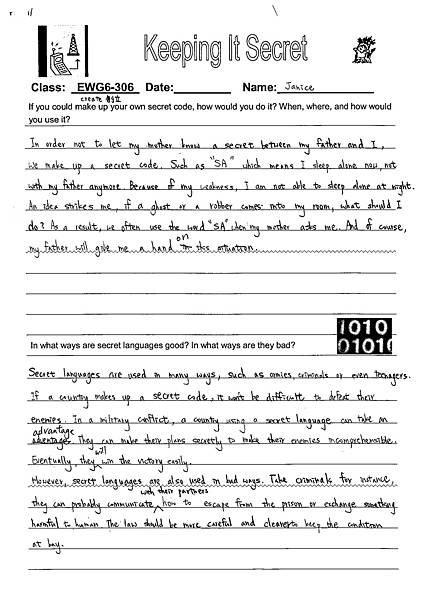 Keeping It Secret
Class: EWG6-306 Date: Name: Janice
create 創立
If you could make up your own secret code, how would you do it? When, where, and how would
you use it?
In order not to let my mother know a secret between my father and I,
we make up a secret code. Such as "SA" which means I sleep alone now, not
with my father anymore. Because of my weakness, I am not able to sleep alone at night.
An idea strikes me, if a ghost or a robber comes into my room, what should I
do? As a result, we often use the word "SA" when my mother asks me. And of course,
my father will give me a hand on this situation.
1010
01010
In what ways are secret languages good? In what ways are they bad?
Secret languages are used in many ways, such as armies, criminals or even teenagers.
If a country makes up a secret code, it won't be difficult to defeat their
enemies. In a military conflict, a country using a secret language can take an
advantage
They can make their plans secretly to make their enemies incomprehensible.
Eventually, they will win the victory easily.
However, secret languages are also used in bad ways. Take criminals for instance,
they can probably communicate with their partners how to escape from the prison or exchange something
harmful to human. The law should be more careful and clearer to keep the condition
at bay.